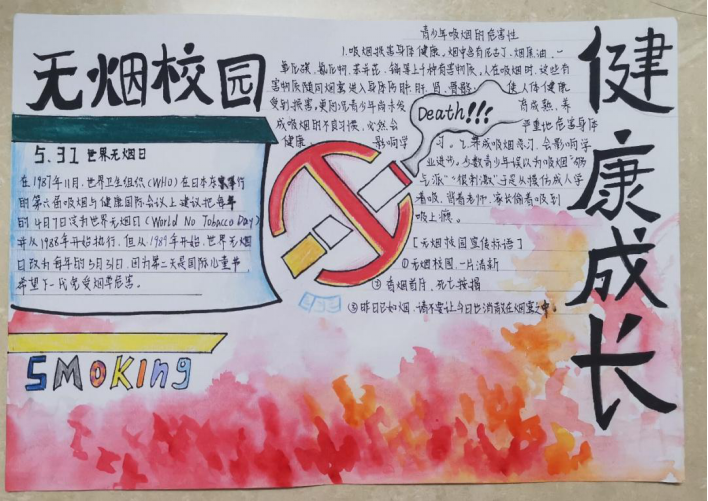 无烟校园
健康成长
5.31 世界无烟日
在1987年11月,世界卫生组织(WHO)在日本东京举行
的第六届吸烟与健康国际会议上建议把每年
的4月7日定为世界无烟日(World No Tobacco Day)
并从1988年开始执行,但从1989年开始,世界无烟
日改为每年的5月31日,因为第二天是国际儿童节,
希望下一代免受烟草危害。
SMOKINg
青少年吸烟的危害性
1.吸烟损害身体健康。烟中含有尼古丁、烟焦油、一
氧化碳、氰化物、苯并芘、镉等上千种有害物质,人在吸烟时,这些有
害物质随同烟雾进入身体内脏,肝、肾、 使人体健康
受到损害,更何况青少年尚未发 育成熟,养
成吸烟的不良习惯,必然会 严重地危害身体
健康。 影响学 习。2.养成吸烟恶习,会影响学
业进步,少数青少年误以为吸烟“够
气派”“很刺激”于是从模仿成人学
着吸,背着老师、家长偷着吸到
吸上瘾。
Death!!!
[无烟校园宣传标语]
①无烟校园,一片清新
②青烟 ,死亡按揭
③昨日已如烟,请不要让今日也消散在烟雾之中。